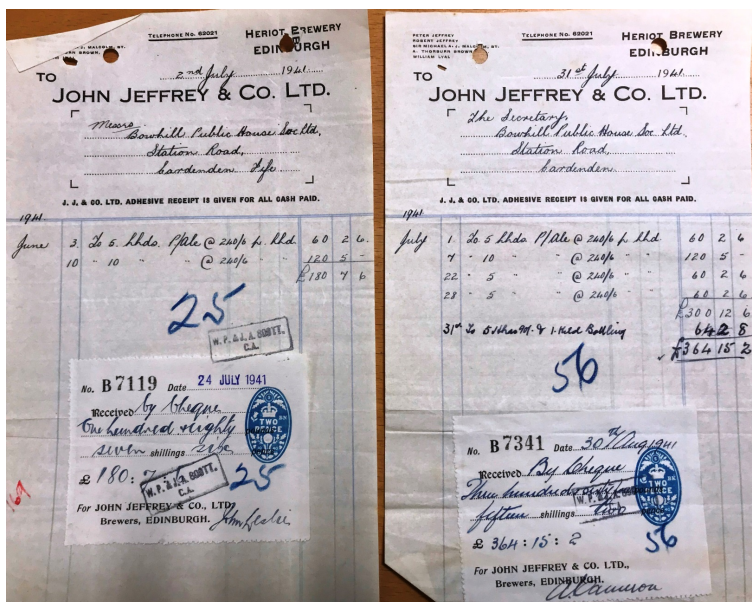 TELEPHONE No. 62021
HERIOT BREWERY
EDINBURGH
TO
2nd July 1941
JOHN JEFFREY & CO. LTD.
Messrs
Bowhill Public House Soc Ltd,
Station Road,
Cardenden Fife
J. J. & CO. LTD. ADHESIVE RECEIPT IS GIVEN FOR ALL CASH PAID.
1941
June 3. To 5. hhds. P/Ale @ 240/6 p. hhd 60 2 6.
10 " 10 " " @ 240/6 " " 120 5 -
£180 7 6
25
W. P. & J. A. SCOTT.
C.A.
No. B 7119 Date 24 JULY 1941
Received by Cheque
One hundred & eighty
seven shillings six
£ 180: 7
W. P. & J. A. SCOTT.
C.A.
25
TWO PENCE
For JOHN JEFFREY & CO., LTD.
Brewers, EDINBURGH.
John Leslie
169
PETER JEFFREY
ROBERT JEFFREY
SIR MICHAEL A. J. MALCOLM, BT.
A. THORBURN BROWN,
WILLIAM LYAL
TELEPHONE No. 62021
HERIOT BREWERY
EDINBURGH
TO
31st July 1941
JOHN JEFFREY & CO. LTD.
The Secretary,
Bowhill Public House Soc. Ltd.
Station Road,
Cardenden.
J. J. & CO. LTD. ADHESIVE RECEIPT IS GIVEN FOR ALL CASH PAID.
1941
July 1. To 5 hhds. P/Ale @ 240/6 p. hhd 60 2 6
7 " 10 " " @ 240/6 " " 120 5 -
22 " 5 " " @ 240/6 " " 60 2 6
28 " 5 " " @ 240/6 60 2 6
£300 12 6
31st To Bottling 64 2 8
£364 15 2
56
No. B 7341 Date 30th Aug 1941
Received By Cheque
Three hundred & sixty
fifteen shillings two
£ 364 : 15 : 2
TWO PENCE
56
For JOHN JEFFREY & CO. LTD.,
Brewers, EDINBURGH.
A Cameron